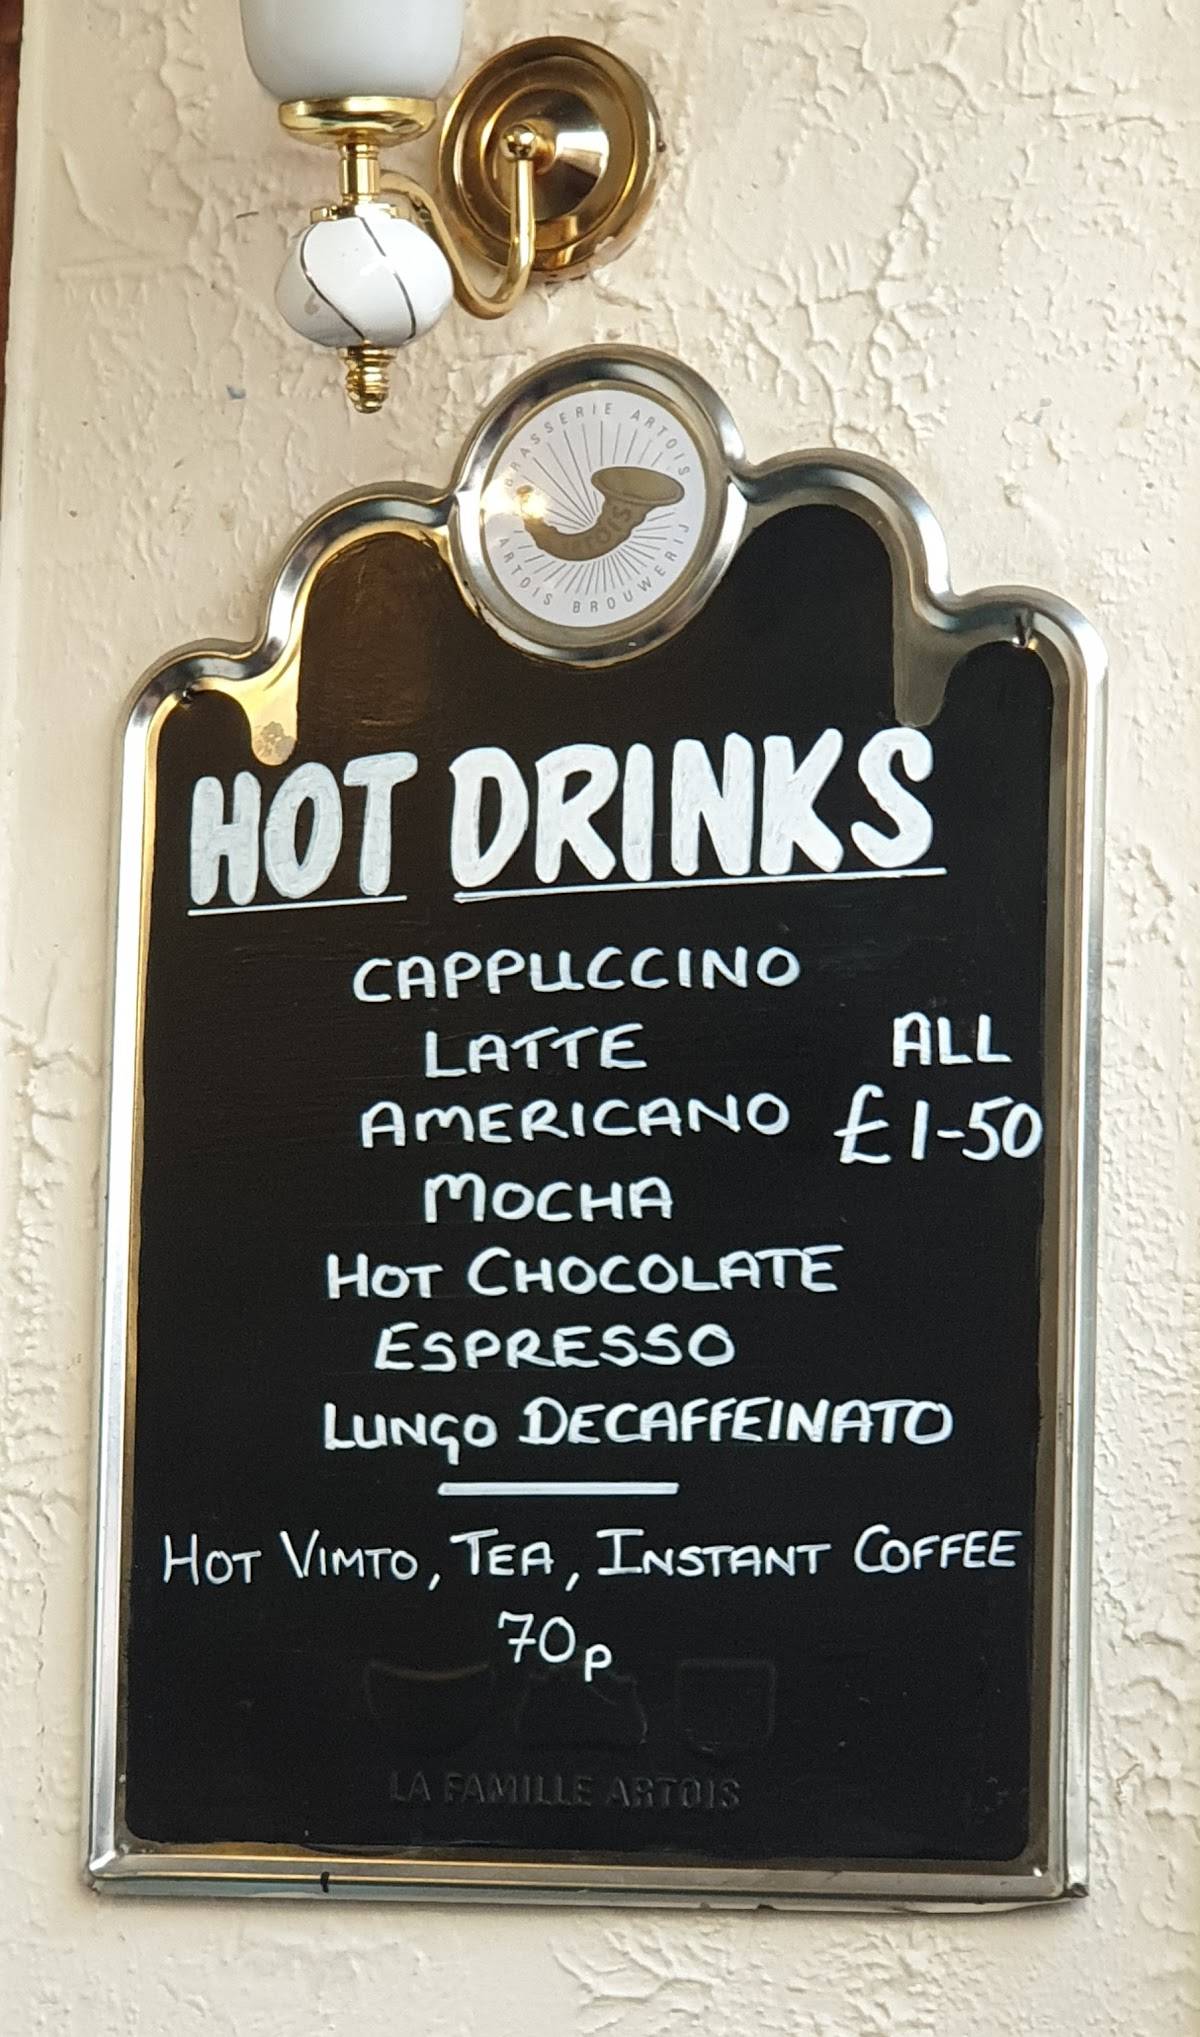 BRASSERIE ARTOIS
ARTOIS
ARTOIS BROUWERIJ
HOT DRINKS
CAPPUCCINO
LATTE
AMERICANO
MOCHA
HOT CHOCOLATE
ESPRESSO
LUNGO DECAFFEINATO
ALL
£1-50
HOT VIMTO, TEA, INSTANT COFFEE
70p
LA FAMILLE ARTOIS